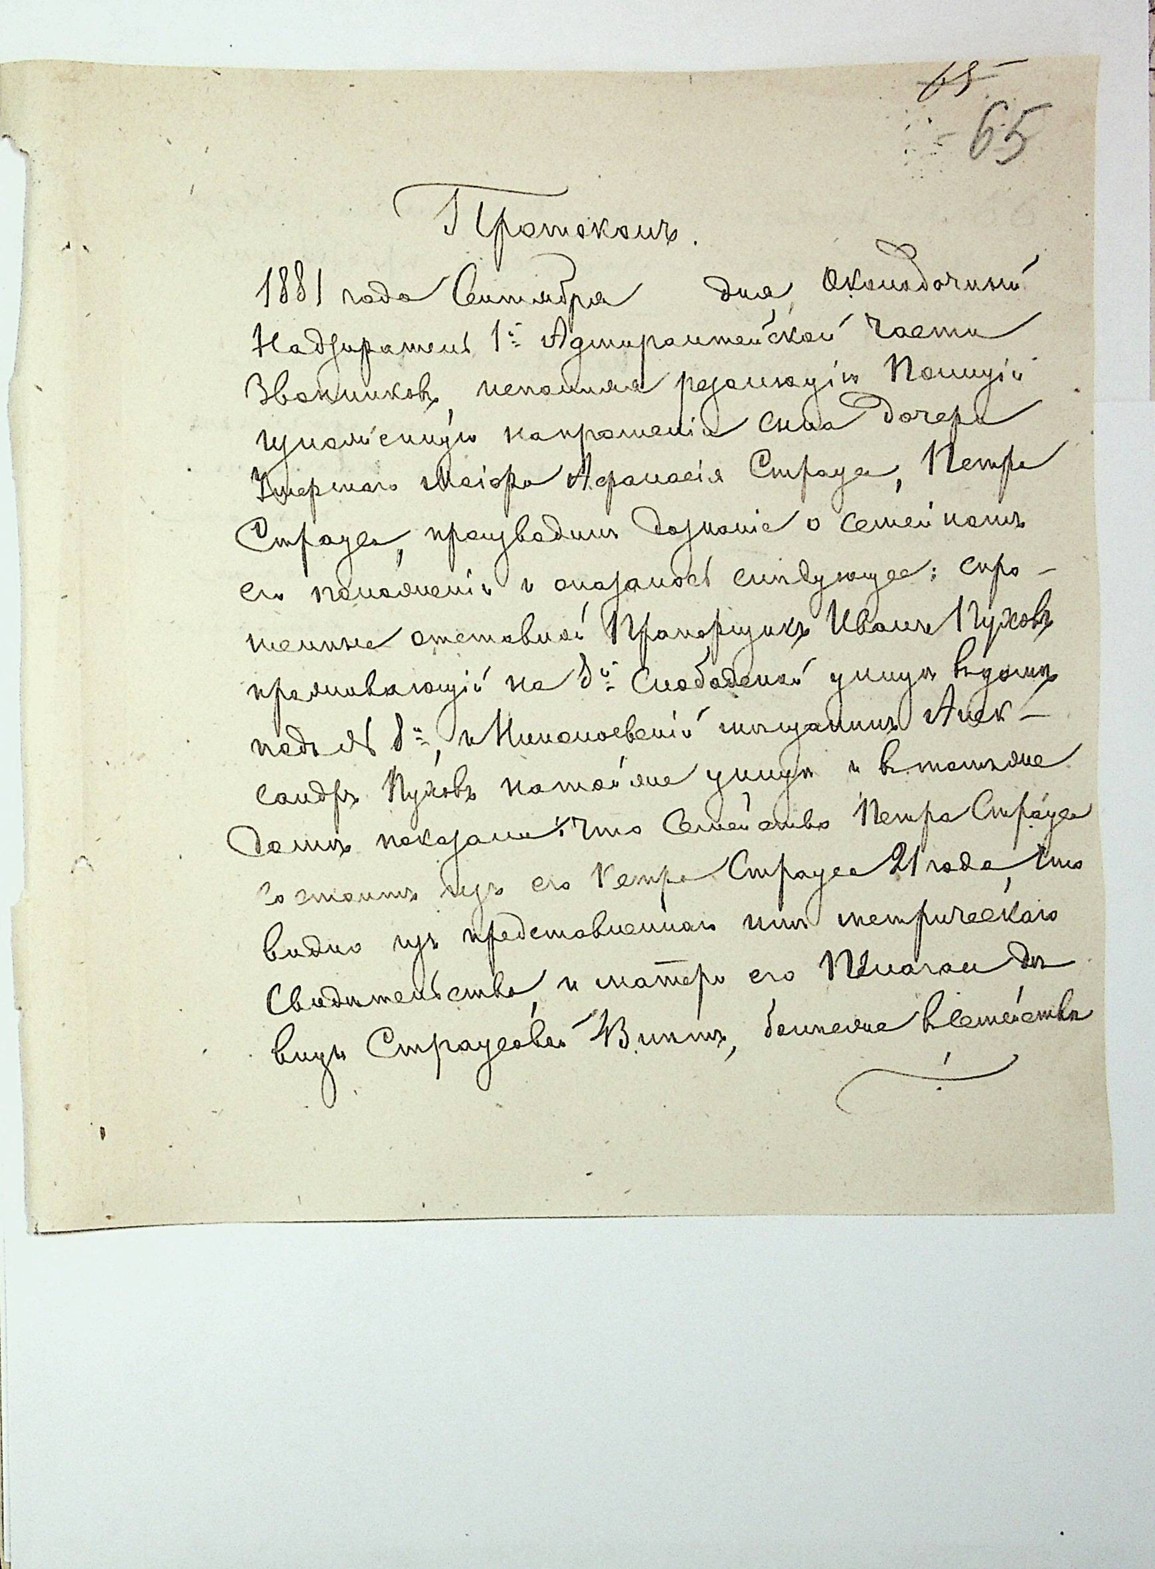 65
65
Протоколъ.
1881 года Сентября дня, Околодочный
Надзиратель 1й Адмиралтейской части
Звонниковъ, исполняя резолюцію Полиціи
сына дочери
Умершаго Маіора Афанасія Страуса, Петра
Страуса, производилъ дознаніе о семейномъ
его положеніи и оказалось слѣдующее: спро-
шенные отставной Прапорщикъ Иванъ Пуховъ
проживающій на 8й Слободской улицѣ въ домѣ
подъ № 8м, и Николаевскій мѣщанинъ Алек-
сандръ Пуховъ на той же улицѣ и въ томъ же
домѣ показали: что Семейство Петра Страуса
состоитъ изъ его Петра Страуса 21 года, что
видно изъ представленнаго имъ метрическаго
Свидѣтельства, и матери его
Страусовой болѣе же въ семействѣ